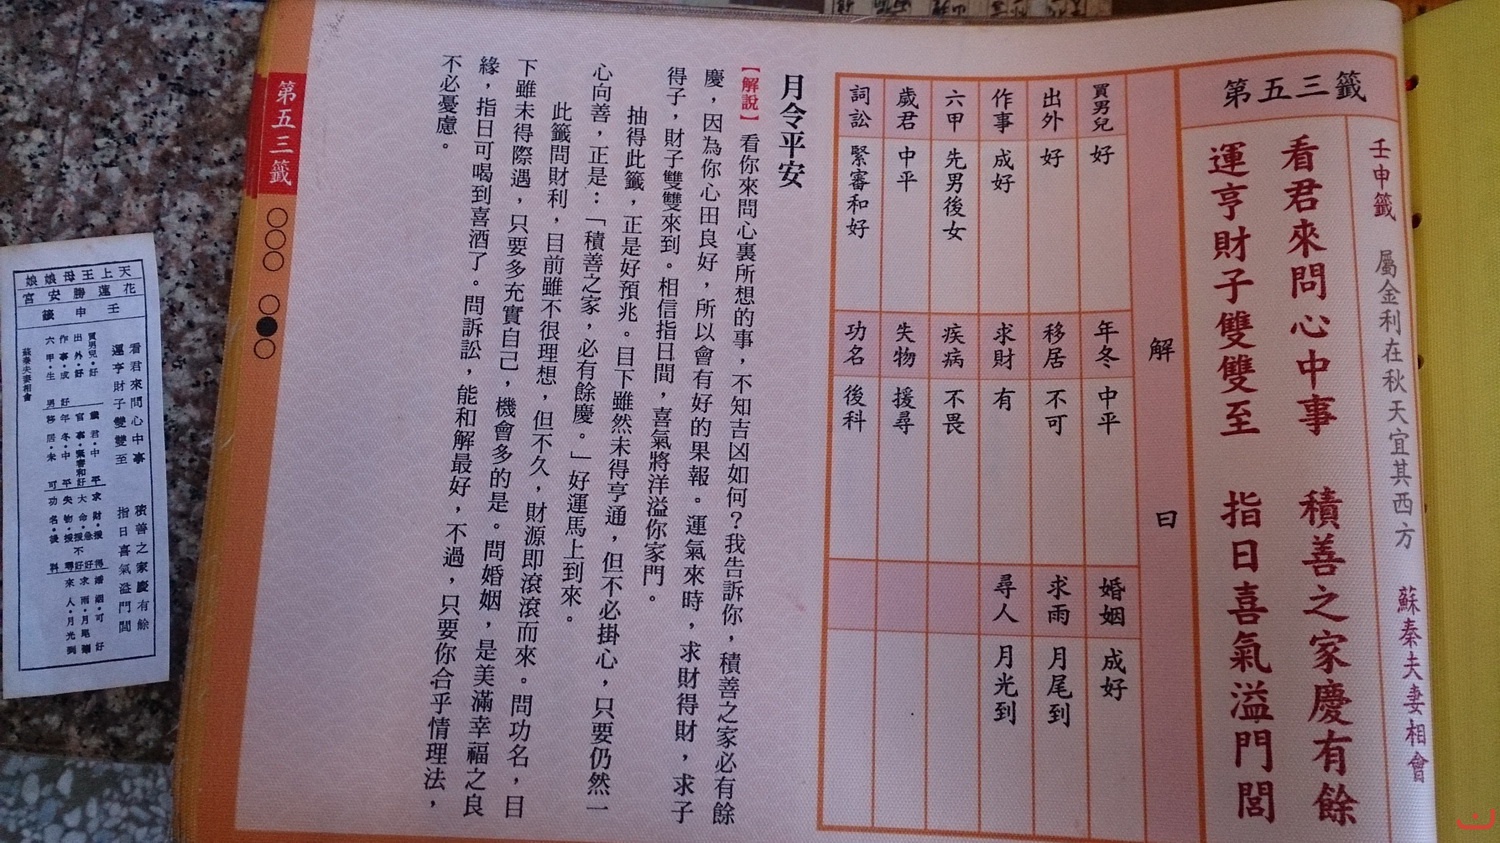 第五三籤
壬申籤　屬金利在秋天宜其西方　蘇秦夫妻相會
看君來問心中事　積善之家慶有餘
運亨財子雙雙至　指日喜氣溢門閭
解曰
買男兒　好　年冬　中平　婚姻　成好
出外　好　移居　不可　求雨　月尾到
作事　成好　求財　有　尋人　月光到
六甲　先男後女　疾病　不畏
歲君　中平　失物　援尋
詞訟　緊審和好　功名　後科
月令平安
【解說】看你來問心裏所想的事，不知吉凶如何？我告訴你，積善之家必有餘
慶，因為你心田良好，所以會有好的果報。運氣來時，求財得財，求子
得子，財子雙雙來到。相信指日間，喜氣將洋溢你家門。
抽得此籤，正是好預兆。目下雖然未得亨通，但不必掛心，只要仍然一
心向善，正是：「積善之家，必有餘慶。」好運馬上到來。
此籤問財利，目前雖不很理想，但不久，財源即滾滾而來。問功名，目
下雖未得際遇，只要多充實自己，機會多的是。問婚姻，是美滿幸福之良
緣，指日可喝到喜酒了。問訴訟，能和解最好，不過，只要你合乎情理法，
不必憂慮。
第五三籤
○○○　○●○
天上王母娘娘
花蓮勝安宮
壬申籤
看君來問心中事　積善之家慶有餘
運亨財子雙雙至　指日喜氣溢門閭
買男兒・好　歲君・中平　求財・援得　婚姻・可好
出外・好　官事・緊審和好　大命・急援不好　求雨・月尾
作事・成好　年冬・中平　失物・援尋　來人・月光到
六甲・生男　移居・未可　功名・後科
蘇秦夫妻相會